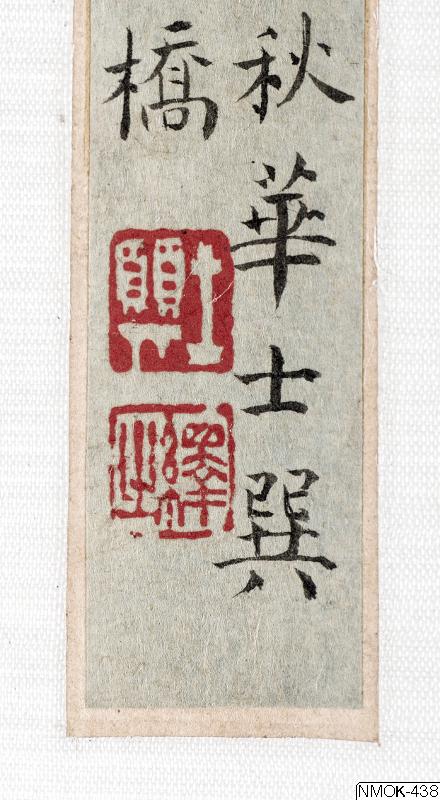 秋華士巽
橋
NMOK-438